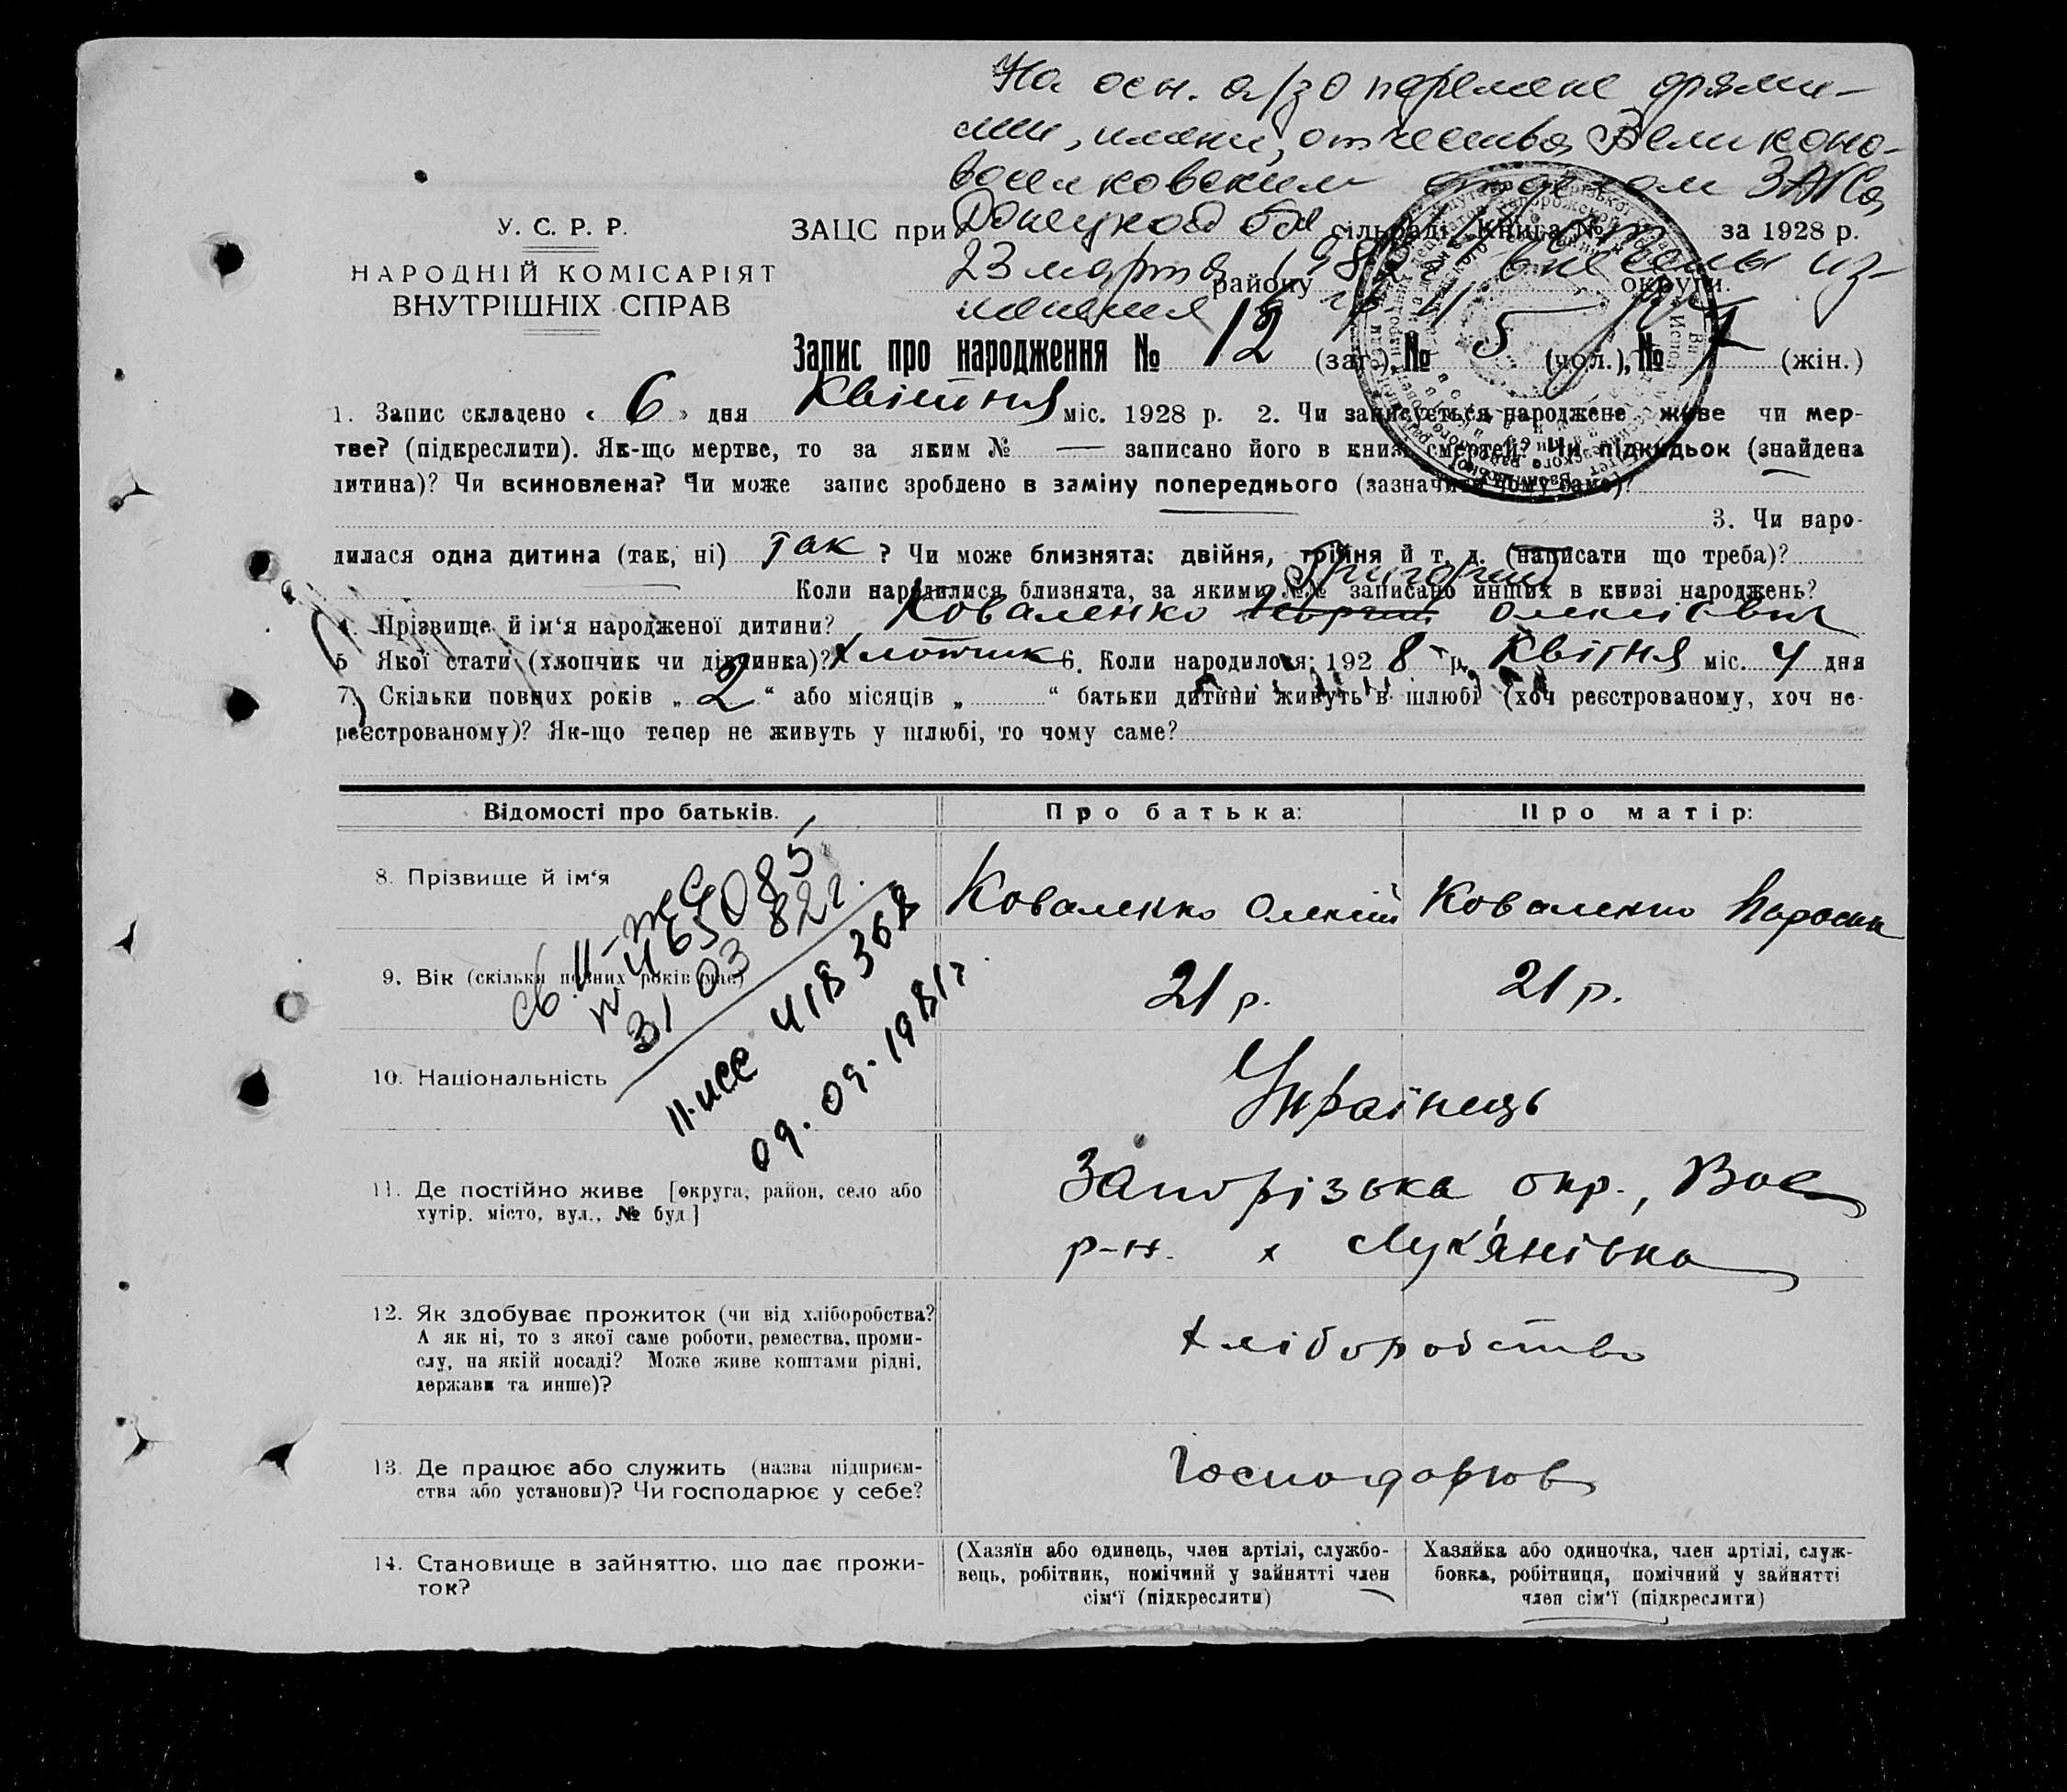 На осн. а/з о перемене фами-
лии, имени, отчества Великоно-
воселковским отделом ЗАГСа
У. С. Р. Р.
НАРОДНІЙ КОМІСАРІЯТ
ВНУТРІШНІХ СПРАВ
ЗАЦС при Донецкой обл сільраді. Книга № за 1928 р.
23 марта внесены из-
району округи.
менения
Запис про народження № 12 (заг.) № 5 (чол.), № (жін.)
1. Запис складено « 6 » дня Квітня міс. 1928 р. 2. Чи записується народжене живе чи мер-
тве? (підкреслити). Як-що мертве, то за яким № — записано його в книзі смертей? Чи підкидьок (знайдена
дитина)? Чи всиновлена? Чи може запис зроблено в заміну попереднього (зазначити чому саме)?
3. Чи наро-
дилася одна дитина (так, ні) Так ? Чи може близнята: двійня, трійня й т. д. (написати що треба)?
Коли народилися близнята, за якими №№ записано инших в книзі народжень?
Григорий
4. Прізвище й ім‘я народженої дитини? Коваленко Георгій Олексієвич
5 Якої стати (хлопчик чи дівчинка)? Хлопчик 6. Коли народилося: 192 8 р. Квітня міс. 4 дня
7. Скільки повних років „ 2 “ або місяців „ “ батьки дитини живуть в шлюбі (хоч реєстрованому, хоч не-
реєстрованому)? Як-що тепер не живуть у шлюбі, то чому саме?
Відомості про батьків. Про батька: Про матір:
8. Прізвище й ім‘я Коваленко Олексій Коваленко Параска
9. Вік (скільки повних років має) 21 р. 21 р.
св. II-ЖС
№ 465085
31 03 82 г.
II-ИСС 418368
09.09.1981 г.
10. Національність Українець
11. Де постійно живе [округа, район, село або Запорізька окр., Вас
хутір, місто, вул., № буд.] р-н. х Лук'янівка
12. Як здобуває прожиток (чи від хліборобства? Хліборобство
А як ні, то з якої саме роботи, ремества, проми-
слу, на якій посаді? Може живе коштами рідні,
держави та инше)?
13. Де працює або служить (назва підприєм-
ства або установи)? Чи господарює у себе?
14. Становище в зайняттю, що дає прожи-
ток?
(Хазяїн або одинець, член артілі, службо-
вець, робітник, помічний у зайнятті член
сім‘ї (підкреслити)
Хазяйка або одиночка, член артілі, служ-
бовка, робітниця, помічний у зайнятті
член сім‘ї (підкреслити)